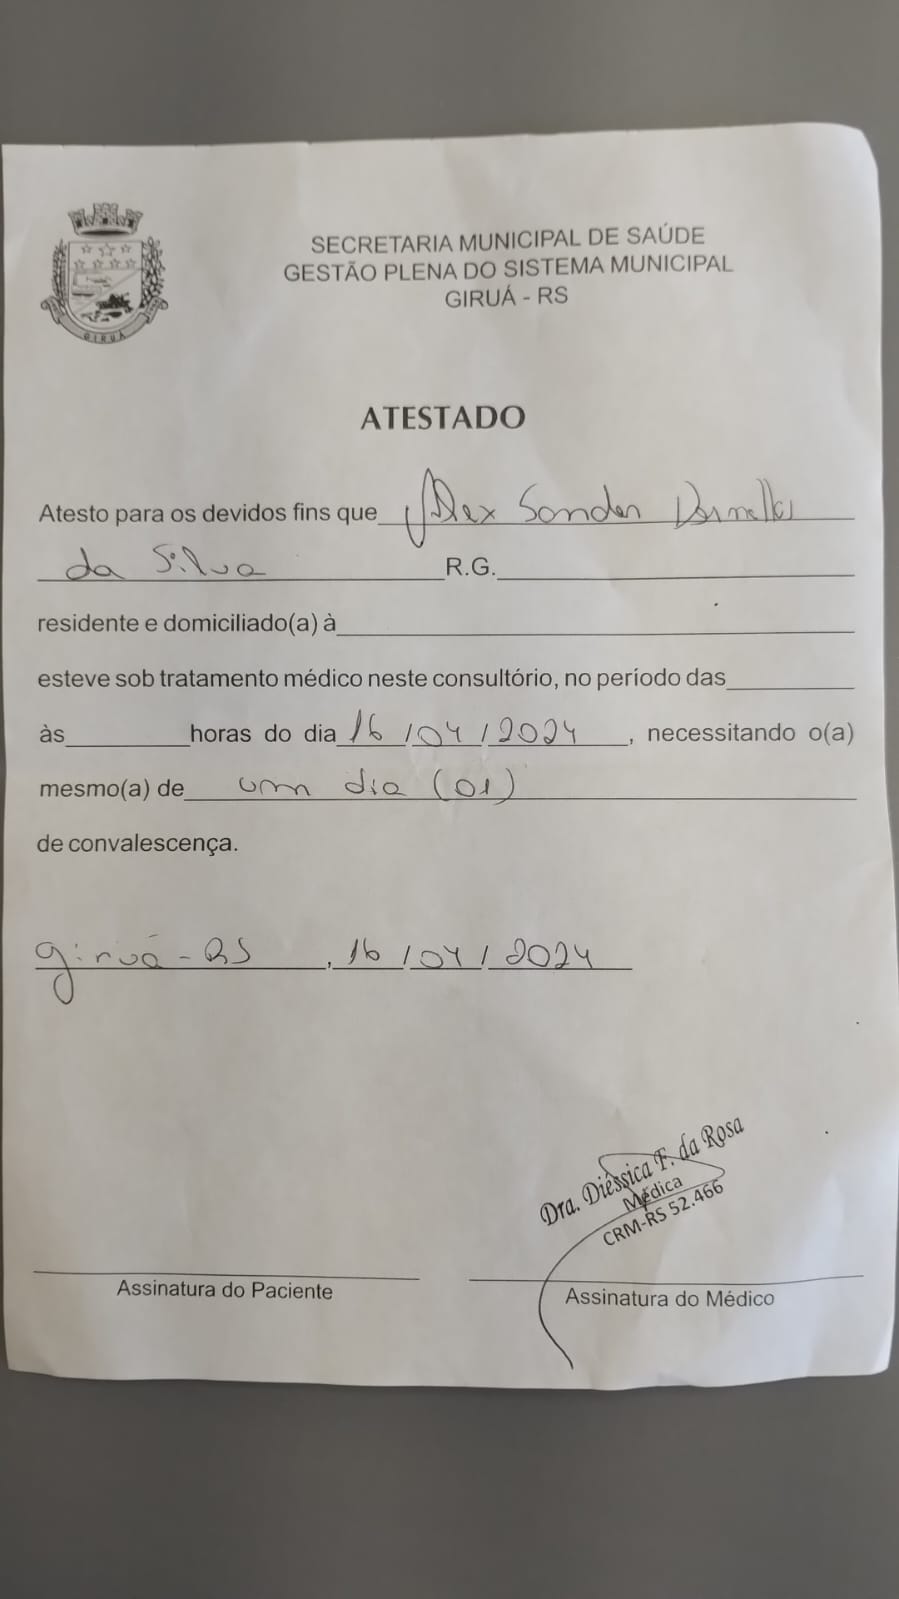 GIRUÁ
SECRETARIA MUNICIPAL DE SAÚDE
GESTÃO PLENA DO SISTEMA MUNICIPAL
GIRUÁ - RS
ATESTADO
Atesto para os devidos fins que Alex Sander
da Silva R.G.
residente e domiciliado(a) à
esteve sob tratamento médico neste consultório, no período das
às horas do dia 16/04/2024, necessitando o(a)
mesmo(a) de um dia (01)
de convalescença.
Giruá-RS, 16/04/2024
Dra. Diéssica F. da Rosa
Médica
CRM-RS 52.466
Assinatura do Paciente
Assinatura do Médico